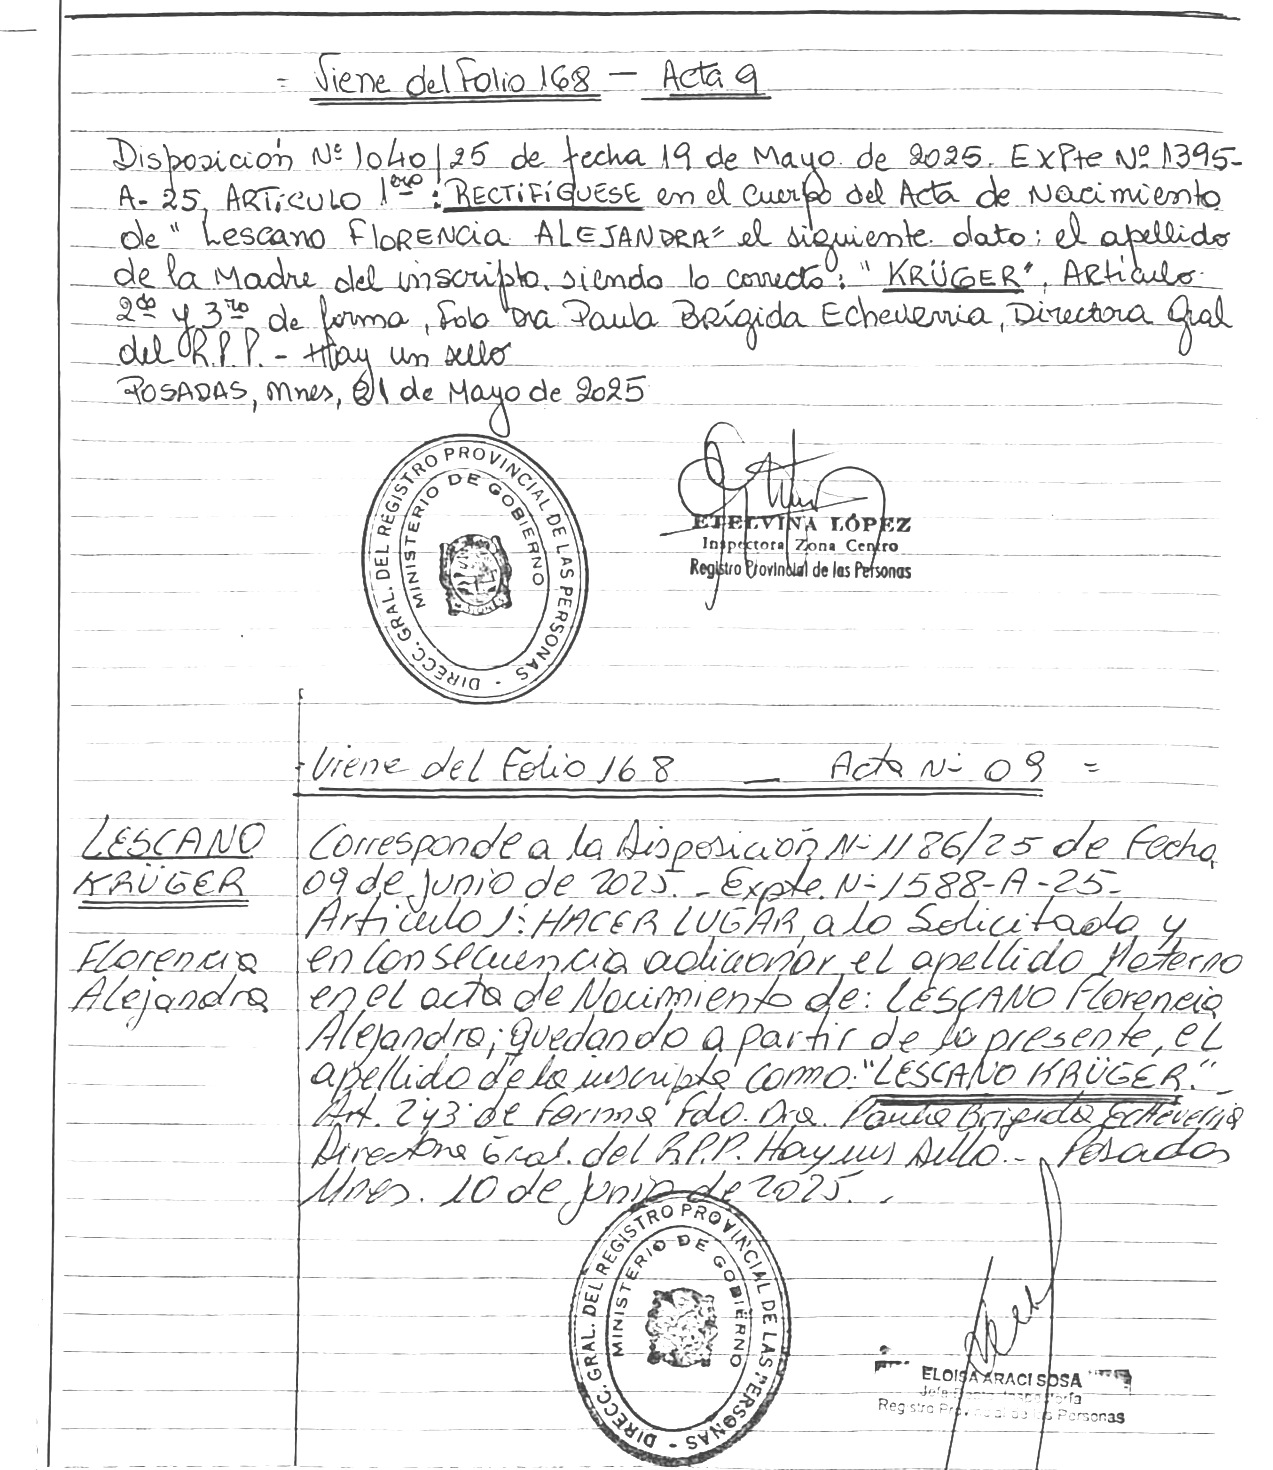 = Viene del Folio 168 — Acta 9
Disposición Nº 1040/25 de fecha 19 de Mayo de 2025. Expte Nº 1395-
A-25, ARTÍCULO 1ero: RECTIFÍQUESE en el cuerpo del Acta de Nacimiento
de "Lescano FLORENCIA ALEJANDRA" el siguiente dato: el apellido
de la Madre del inscripto, siendo lo correcto: "KRÜGER", Artículo
2do y 3ro de forma, Fdo Dra Paula Brígida Echeverria, Directora Gral
del R.P.P. - Hay un sello
POSADAS, Mnes, 21 de Mayo de 2025
DIRECC. GRAL. DEL REGISTRO PROVINCIAL DE LAS PERSONAS -
MINISTERIO DE GOBIERNO
ETELVINA LÓPEZ
Inspectora Zona Centro
Registro Provincial de las Personas
Viene del Folio 168 — Acta Nº 09 =
LESCANO
KRÜGER
Florencia
Alejandra
Corresponde a la Disposición Nº 1186/25 de Fecha
09 de Junio de 2025. - Expte. Nº 1588-A-25-
Artículo 1º: HACER LUGAR, a lo Solicitado y
en Consecuencia adicionar el apellido Materno
en el acta de Nacimiento de: LESCANO Florencia
Alejandra; quedando a partir de la presente, el
apellido de la inscripta como: "LESCANO KRÜGER."
Art. 2 y 3 de Forma Fdo. Dra. Paula Brigida Echeverria
Directora Gral. del R.P.P. Hay un Sello. - Posadas
Mnes. 10 de Junio de 2025.
DIRECC. GRAL. DEL REGISTRO PROVINCIAL DE LAS PERSONAS -
MINISTERIO DE GOBIERNO
ELOISA ARACI SOSA
Registro Provincial de las Personas